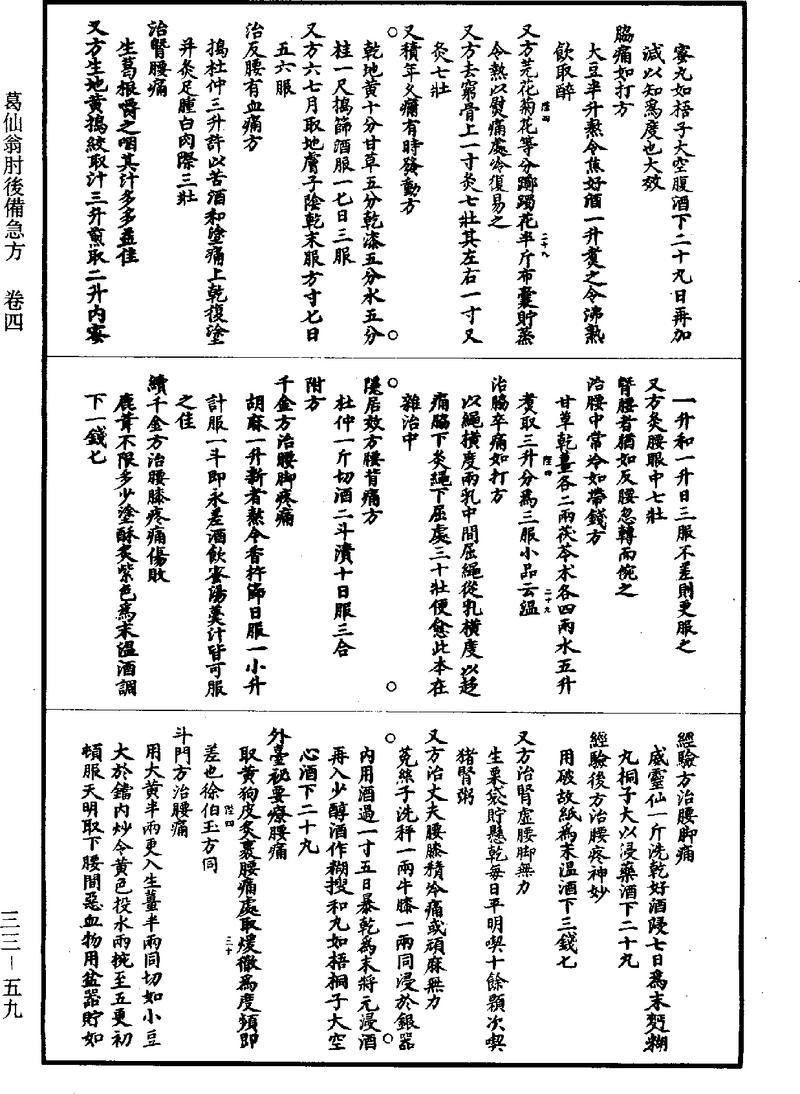 葛仙翁肘後備急方　卷四
三三－五九
蜜丸如梧子大空腹酒下二十九日再加
減以知為度也大效
脇痛如打方
大豆半升熬令焦好酒一升煮之令沸熟
飲取醉
又方芫花菊花等分躑躅花半斤布囊貯蒸
令熱以熨痛處冷復易之
又方去窮骨上一寸灸七壯其左右一寸又
灸七壯
又積年久痛有時發動方
乾地黃十分甘草五分乾漆五分水五分
桂一尺搗篩酒服一匕日三服
又方六七月取地膚子陰乾末服方寸匕日
五六服
治反腰有血痛方
搗杜仲三升許以苦酒和塗痛上乾復塗
并灸足腫白肉際三壯
治腎腰痛
生葛根嚼之咽其汁多多益佳
又方生地黃搗絞取汁三升煎取二升內蜜
一升和一升日三服不差則更服之
又方灸腰眼中七壯
腎腰者猶如反腰忽轉而惋之
治腰中常冷如帶錢方
甘草乾薑各二兩茯苓朮各四兩水五升
煮取三升分為三服小品云溫
治脇卒痛如打方
以繩橫度兩乳中間屈繩從乳橫度以趍
痛脇下灸繩下屈處三十壯便愈此本在
雜治中
隱居效方腰背痛方
杜仲一斤切酒二斗漬十日服三合
附方
千金方治腰脚疼痛
胡麻一升新者熬令香杵篩日服一小升
計服一斗即永差酒飲蜜湯羹汁皆可服
之佳
續千金方治腰膝疼痛傷敗
鹿茸不限多少塗酥炙紫色為末溫酒調
下一錢匕
經驗方治腰脚痛
威靈仙一斤洗乾好酒浸七日為末麪糊
丸桐子大以浸藥酒下二十丸
經驗後方治腰疼神妙
用破故紙為末溫酒下三錢匕
又方治腎虛腰脚無力
生栗袋貯懸乾每日平明喫十餘顆次喫
猪腎粥
又方治丈夫腰膝積冷痛或頑麻無力
菟絲子洗秤一兩牛膝一兩同浸於銀器
內用酒過一寸五日暴乾為末將元浸酒
再入少醇酒作糊搜和丸如梧桐子大空
心酒下二十丸
外臺秘要療腰痛
取黃狗皮炙裹腰痛處取煖徹為度頻即
差也徐伯玉方同
斗門方治腰痛
用大黃半兩更入生薑半兩同切如小豆
大於鐺內炒令黃色投水兩椀至五更初
頓服天明取下腰間惡血物用盆器貯如